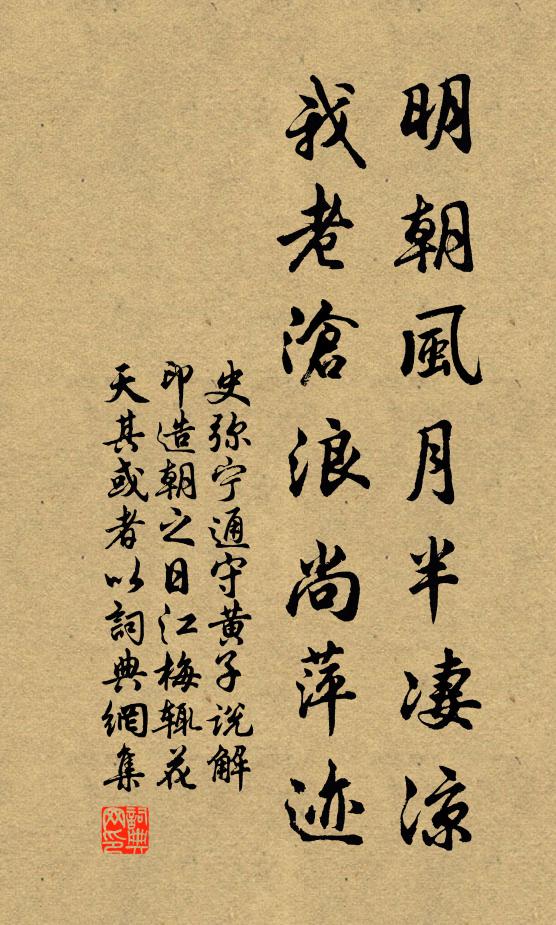 明朝風月半凄涼
我老滄浪尚萍迹
史弥宁通守黄子说解
印造朝之日江梅辄花
天其或者以詞典網集
詞典网印